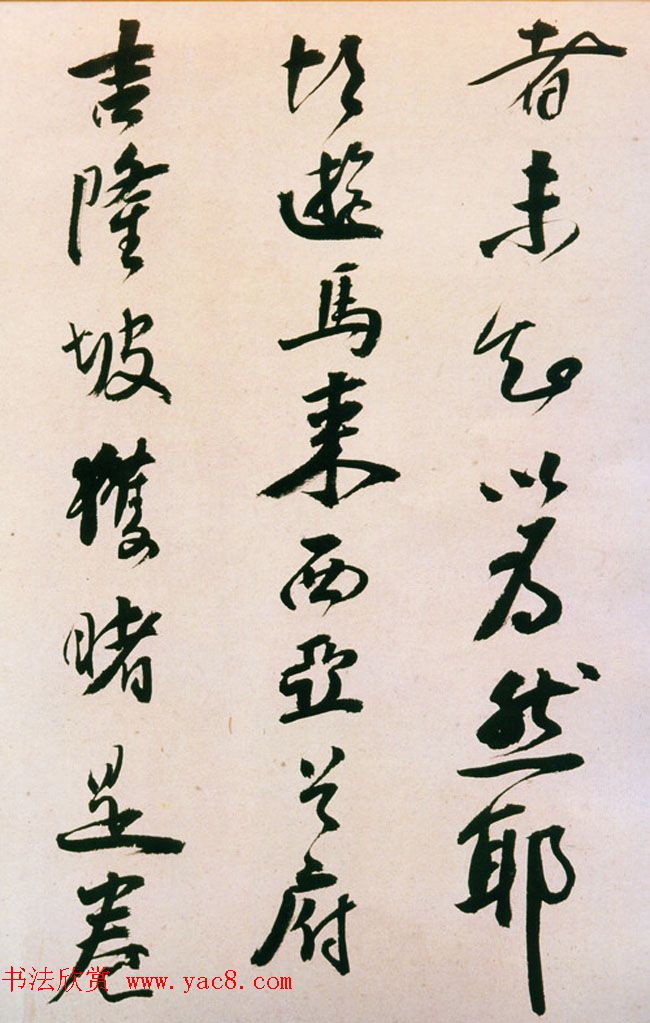 者未知以為然耶
頃遊馬來西亞首府
吉隆坡獲睹是卷
书法欣赏 www.yac8.com